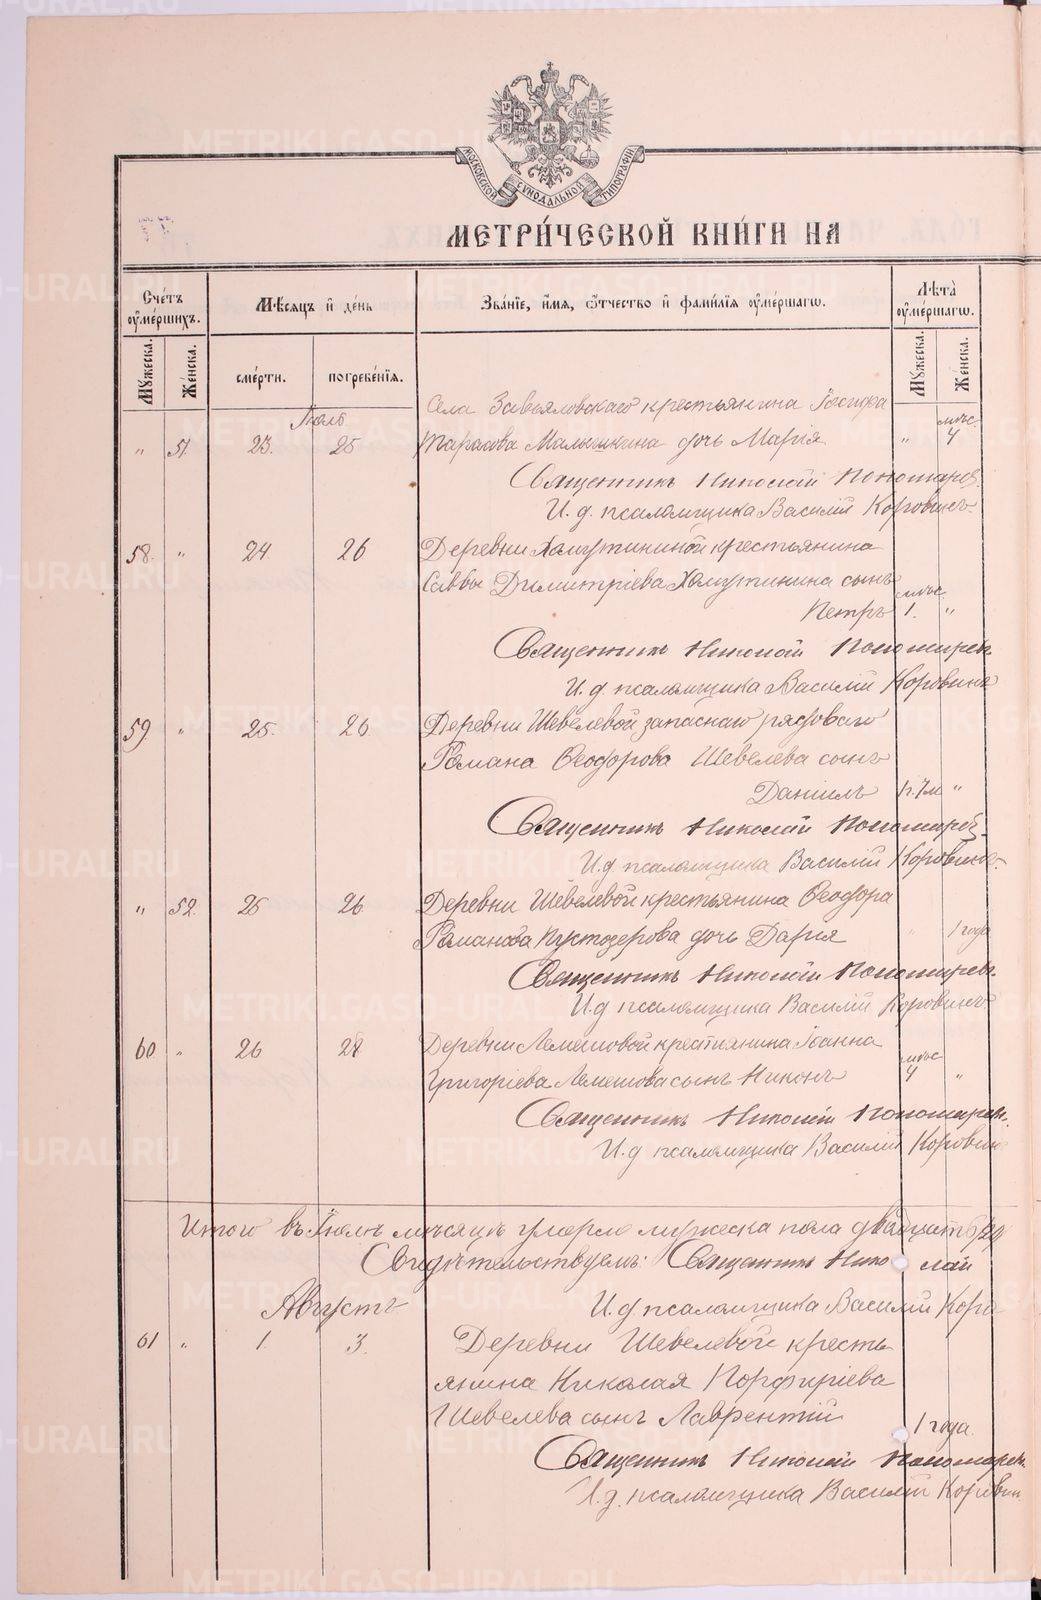 МОСКОВСКОЙ СУНОДАЛЬНОЙ ТИПОГРАФІИ
МЕТРИ́ЧЕСКОЙ КНИ́ГИ НА
Счéтъ ᲂумéршихъ.
Мѣ́сяцъ и҆ де́нь
Зва́нїе, и҆́мя, ѻ҆́тчество и҆ фами́лїѧ ᲂумéршагѡ.
Лѣта̀ ᲂумéршагѡ.
Мꙋ́жеска.
Же́нска.
смéрти.
погребе́нїѧ.
Мꙋ́жеска.
Же́нска.
Іюль
Села Завьяловскаго крестьянина Іосифа
" 51 23. 25 Тарасова Малышкина дочь Марія " мѣс. 4
Священникъ Николай Пономарев
И. д. псаломщика Василій Коровинъ.
58. " 24 26 Деревни Хамутининой крестьянина
Саввы Димитріева Хамутинина сынъ
Петръ мѣс. 1. "
Священникъ Николай Пономарев
И. д псаломщика Василій Коровинъ
59 " 25. 26 Деревни Шевелевой запаснаго рядоваго
Романа Ѳеодорова Шевелева сынъ
Даніилъ 1г. 7м "
Священникъ Николай Пономарев
И. д псаломщика Василій Коровинъ.
" 52. 25 26 Деревни Шевелевой крестьянина Ѳеодора
Романова Пустозерова дочь Дарія " 1 года
Священникъ Николай Пономарев
И. д псаломщика Василій Коровинъ
60 " 26 28 Деревни Лемешовой крестьянина Іоанна
Григоріева Лемешова сынъ Никонъ мѣс 4 "
Священникъ Николай Пономарев.
И. д псаломщика Василій Коровин
Итого въ Іюлѣ мѣсяцѣ умерло мужеска пола двадцать
Свидѣтельствуемъ: Священникъ Николай
Августъ И. д псаломщика Василій Коро
61 " 1. 3. Деревни Шевелевой кресть
янина Николая Порфиріева
Шевелева сынъ Лаврентій 1 года.
Священникъ Николай Пономарев.
И. д. псаломщика Василій Коровин.
METRIKI.GASO-URAL.RU